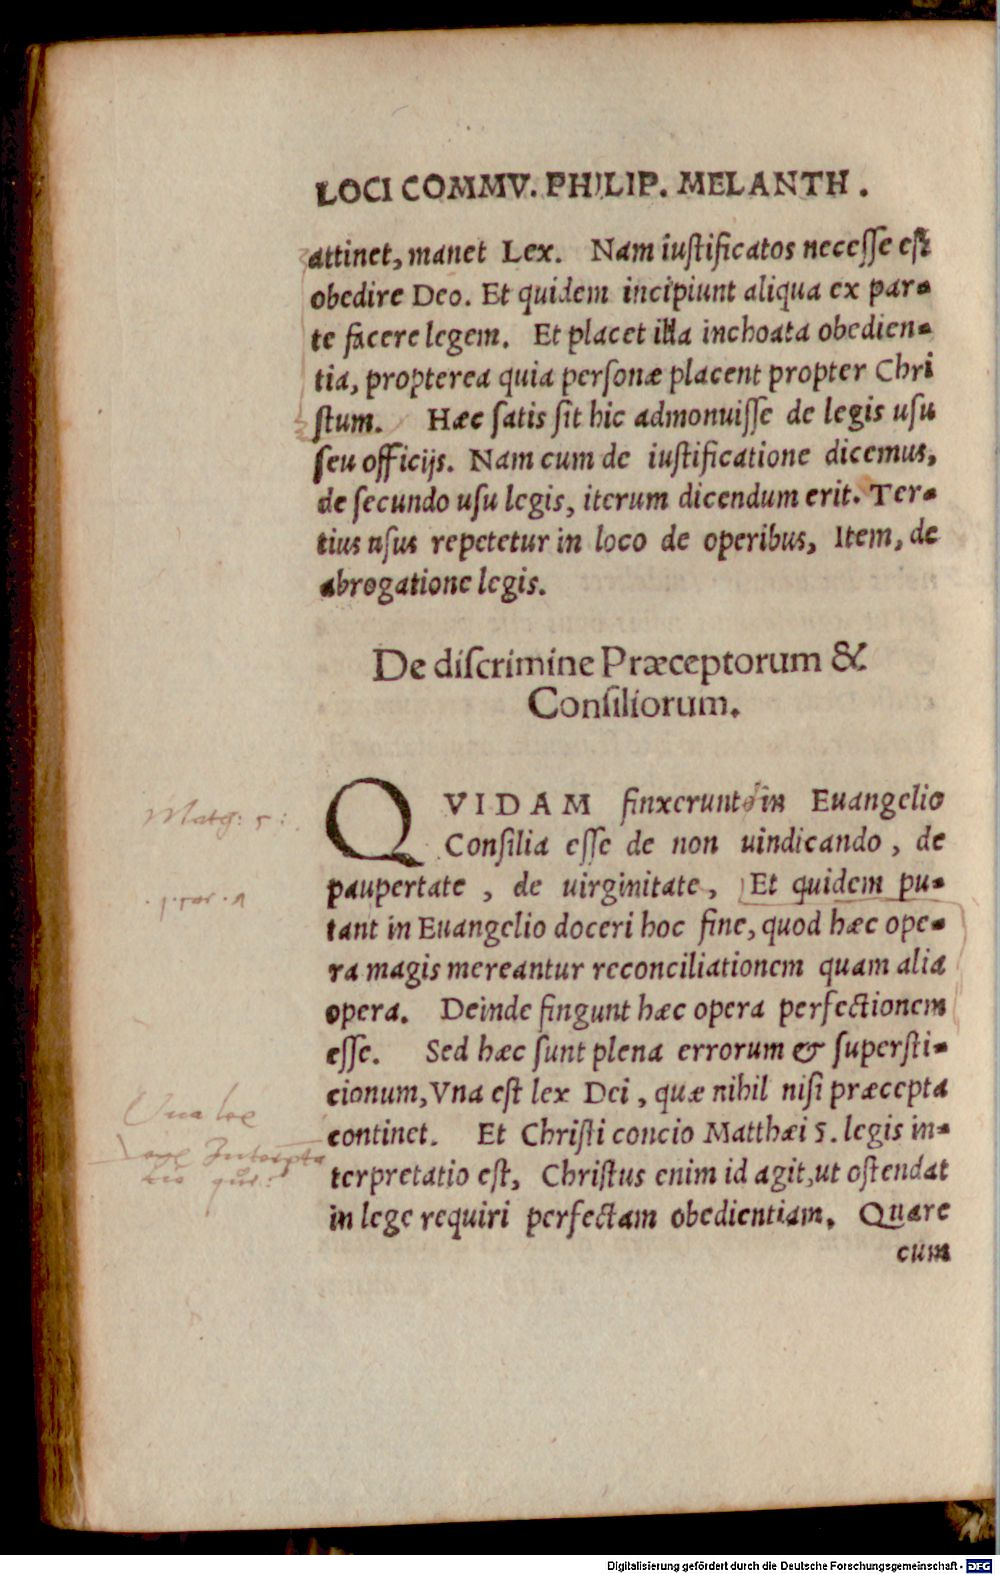 LOCI COMMV. PHILIP. MELANTH.
attinet, manet Lex. Nam iuſtificatos neceſſe eſt
obedire Deo. Et quidem incipiunt aliqua ex par-
te facere legem. Et placet illa inchoata obedien-
tia, propterea quia perſonæ placent propter Chri
ſtum. Hæc ſatis ſit hic admonuiſſe de legis uſu
ſeu officijs. Nam cum de iuſtificatione dicemus,
de ſecundo uſu legis, iterum dicendum erit. Ter-
tius uſus repetetur in loco de operibus, Item, de
abrogatione legis.
De diſcrimine Præceptorum &
Conſiliorum.
QVIDAM finxerunt in Euangelio
Conſilia eſſe de non uindicando, de
paupertate, de uirginitate, Et quidem pu-
tant in Euangelio doceri hoc fine, quod hæc ope-
ra magis mereantur reconciliationem quam alia
opera. Deinde fingunt hæc opera perfectionem
eſſe. Sed hæc ſunt plena errorum & ſuperſti-
cionum, Vna eſt lex Dei, quæ nihil niſi præcepta
continet. Et Chriſti concio Matthæi 5. legis in-
terpretatio eſt, Chriſtus enim id agit, ut oſtendat
in lege requiri perfectam obedientiam. Quare
cum
Math: 5:
Vna lex
Digitalisierung gefördert durch die Deutsche Forschungsgemeinschaft - DFG